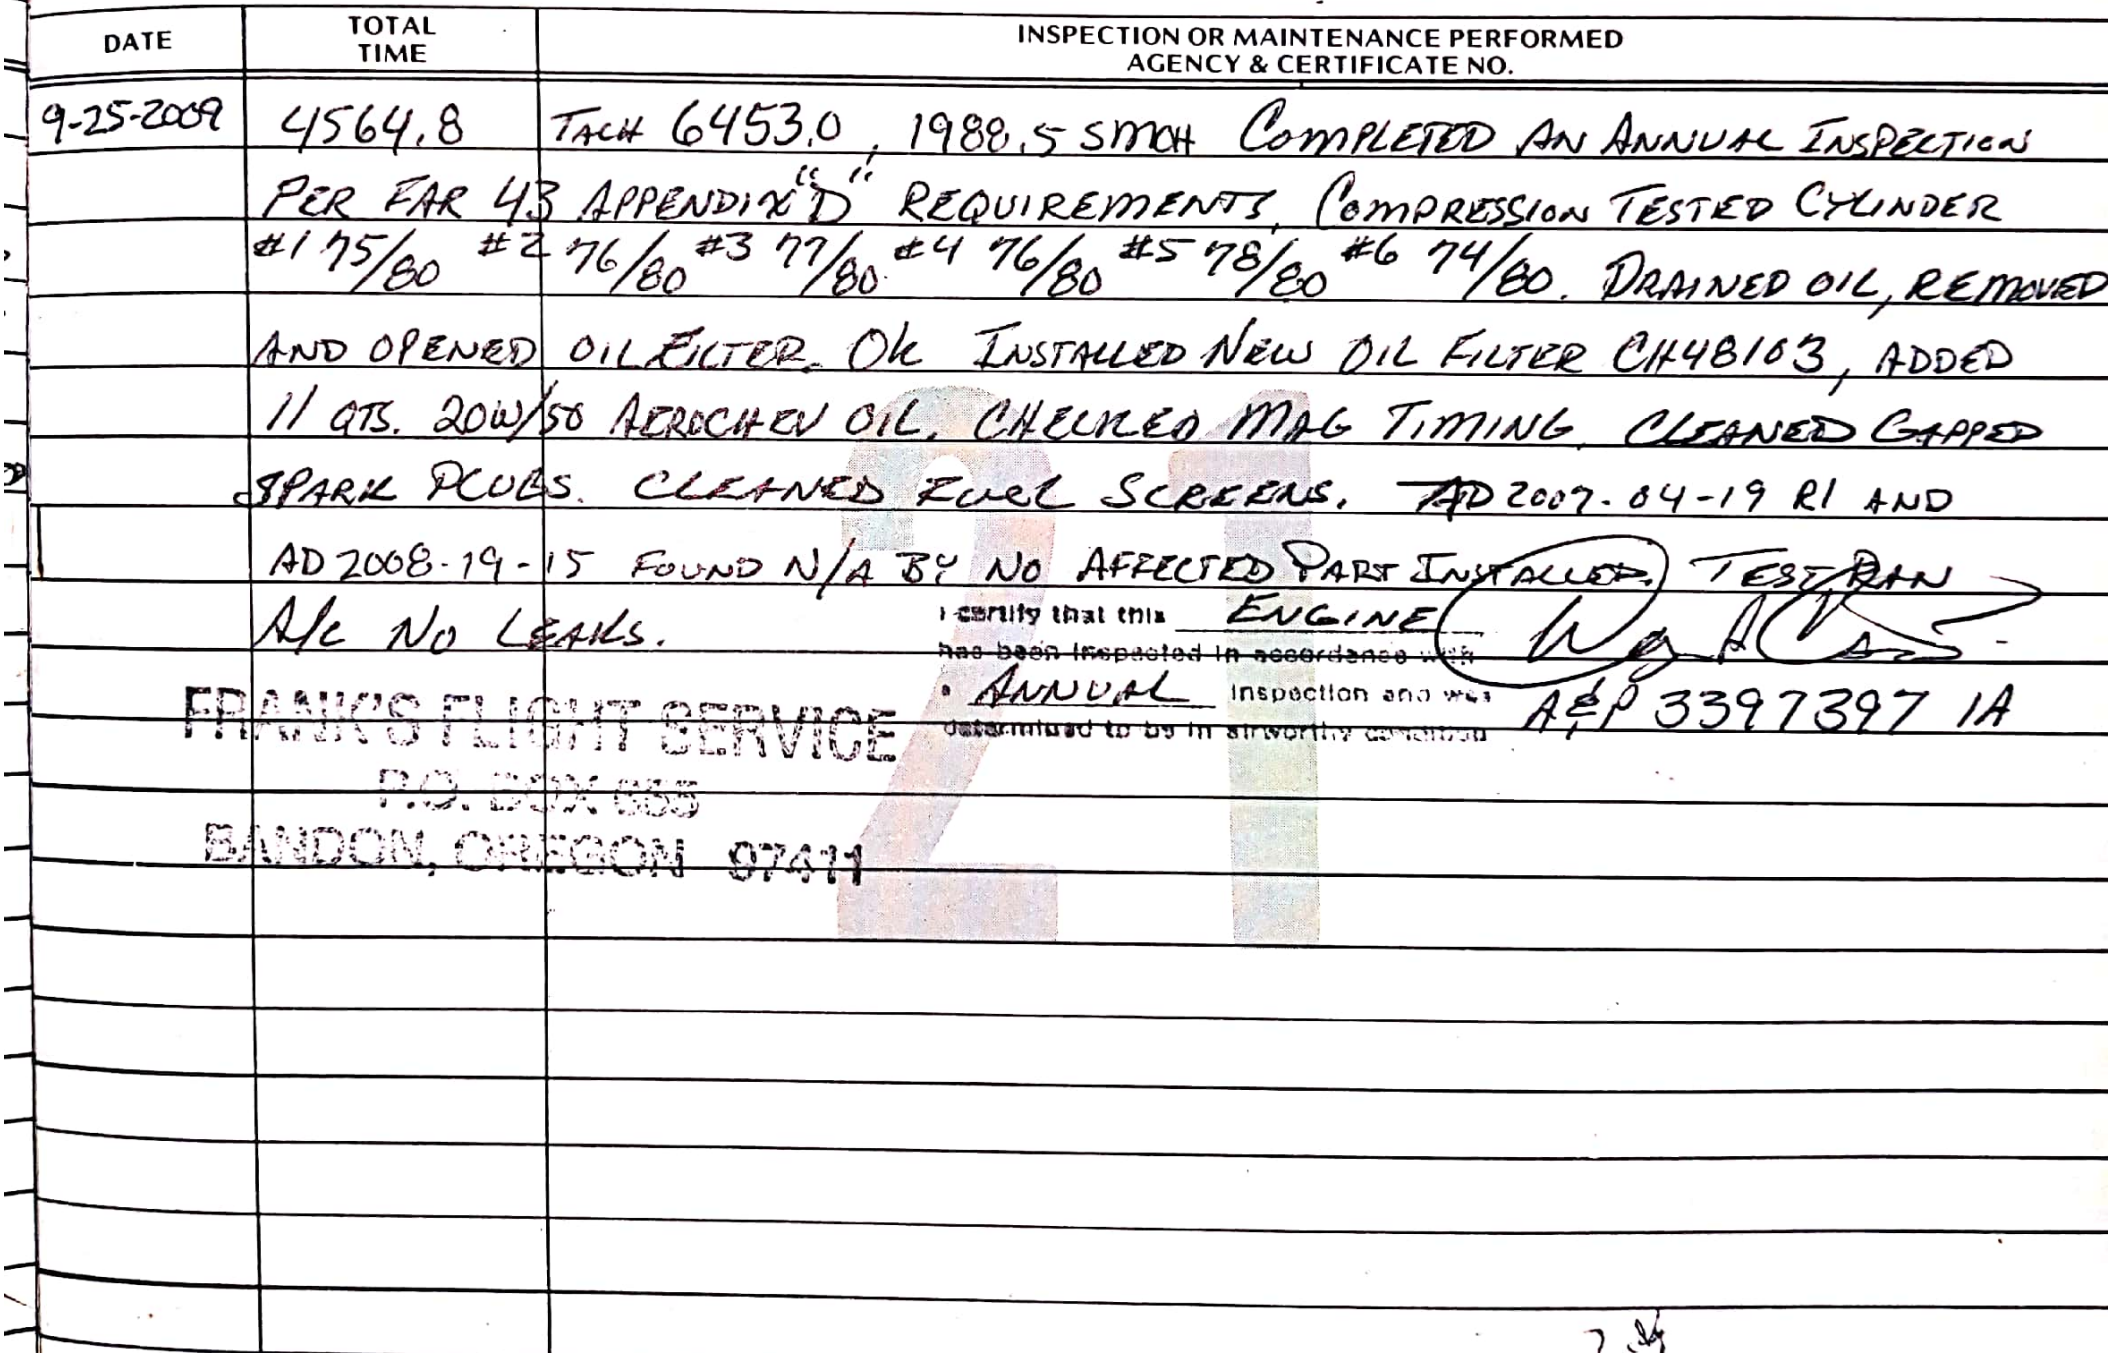 DATE
TOTAL TIME
INSPECTION OR MAINTENANCE PERFORMED
AGENCY & CERTIFICATE NO.
9-25-2009 4564.8 TACH 6453.0, 1988.5 SMOH COMPLETED AN ANNUAL INSPECTION
PER FAR 43 APPENDIX "D" REQUIREMENTS. COMPRESSION TESTED CYLINDER
#1 75/80 #2 76/80 #3 77/80 #4 76/80 #5 78/80 #6 74/80. DRAINED OIL, REMOVED
AND OPENED OIL FILTER. OK INSTALLED NEW OIL FILTER CH48103, ADDED
11 QTS. 20W/50 AEROCHEV OIL. CHECKED MAG TIMING. CLEANED GAPPED
SPARK PLUGS. CLEANED FUEL SCREENS. AD 2009-04-19 R1 AND
AD 2008-19-15 FOUND N/A BY NO AFFECTED PART INSTALLED. TEST RAN
A/C NO LEAKS.
I certify that this ENGINE
has been inspected in accordance with
ANNUAL inspection and was
determined to be in airworthy condition
A&P 3397397 IA
FRANK'S FLIGHT SERVICE
P.O. BOX 655
BANDON, OREGON 97411
21